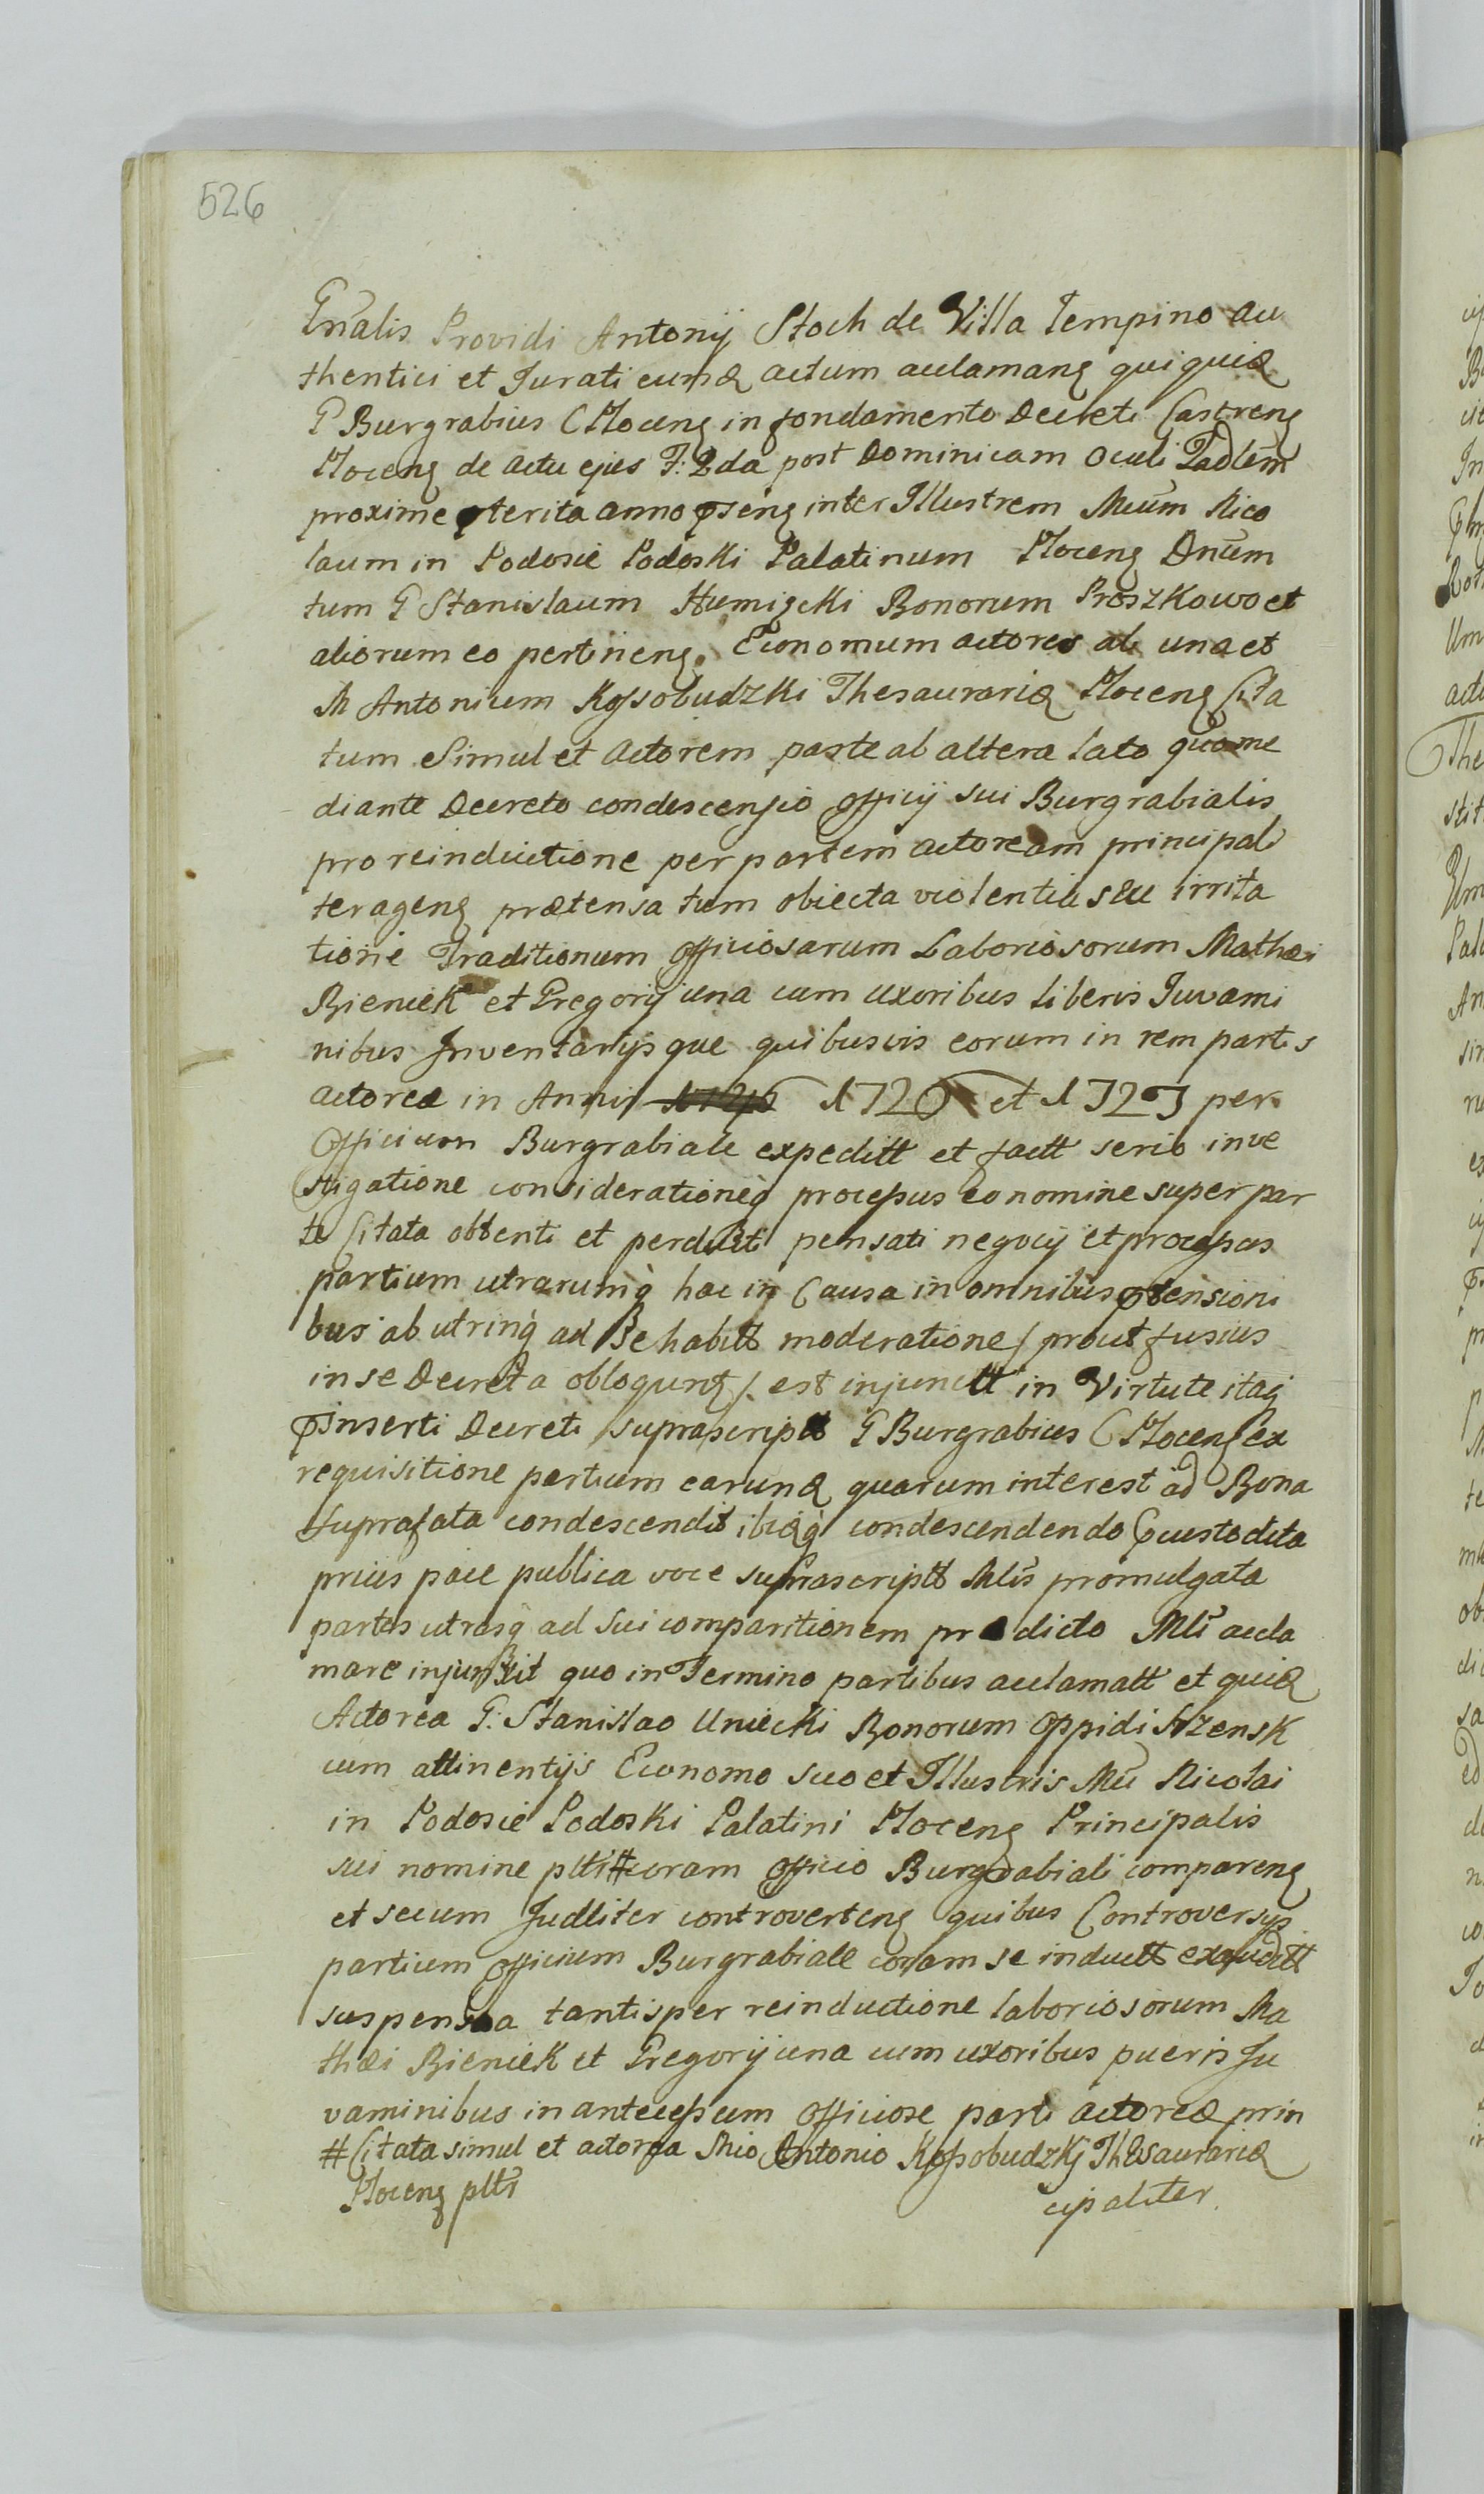 526
Gnalis Providi Antonij Stoch de Villa Tempino au
thentici et Jurati eumq actum acclamanς qui quidē
G Burgrabius C Płocenς in fondamento Decreti Castrenς
Płocenς de actu ejus F: 2da post Dominicam Oculi Qadlem
proxime pterita anno psenς inter Illustrem Mcum Nico
laum in Podosie Podoski Palatinum Płocenς Dnum
tum G Stanislaum Humięcki Bonorum Proszkowo et
aliorum eo pertinenς Economum actores ab una et
M Antonium Kossobudzki Thesaurariū Płocenς Cita
tum Simul et Actorem parte ab altera lato quo me
diante Decreto condescensio officij sui Burgrabialis
pro reinductione per partem actoream principali
ter agenς prætensa tum obiecta violentia seu irrita
tione Traditionum officiosarum Laboriosorum Mathæi
Bieniek et Gregorij una cum uxoribus liberis Juvami
nibus Inventarijsque quibusvis eorum in rem partis
actoreæ in Annis 1726 et 1727 per
Officium Burgrabiale expeditt et factt serio inve
stigatione considerationeq processus eo nomine super par
te Citata obtenti et perducti pensati negocij et processus
partium utrarumq hac in Causa in omnibus ptensioni
bus ab utrinq ad se habitt moderatione / prout fusius
in se Decreta obloquntς /. est injunctt in Virtute itaq
pinserti Decreti suprascriptt G Burgrabius C Płocenς ex
requisitione partium earundē quarum interest ad Bona
suprafata condescendit ibidēq condescendendo Custodita
prius pace publica voce suprascriptt Mlis promulgata
partes utrasq ad sui comparitionem prædicto Mli accla
mare injunxit quo in Termino partibus acclamatt et quidē
Actorea G: Stanislao Uniecki Bonorum Oppidi Szrensk
cum attinentijs Economo suo et Illustris Mci Nicolai
in Podosie Podoski Palatini Płocenς Principalis
sui nomine pltr # coram officio Burgrabiali comparenς
et secum Judlliter controvertenς quibus Controversijs
partium officium Burgrabiale coram se inductt exauditt
suspensa tantisper reinductione laboriosorum Ma
thæi Bieniek et Gregorij una cum uxoribus pueris Ju
vaminibus in antecessum officiose parti actoreæ prin
# Citata simul et actorea Mco Antonio Kossobudzkj Thesaurariū
Płocenς pltr
cipaliter